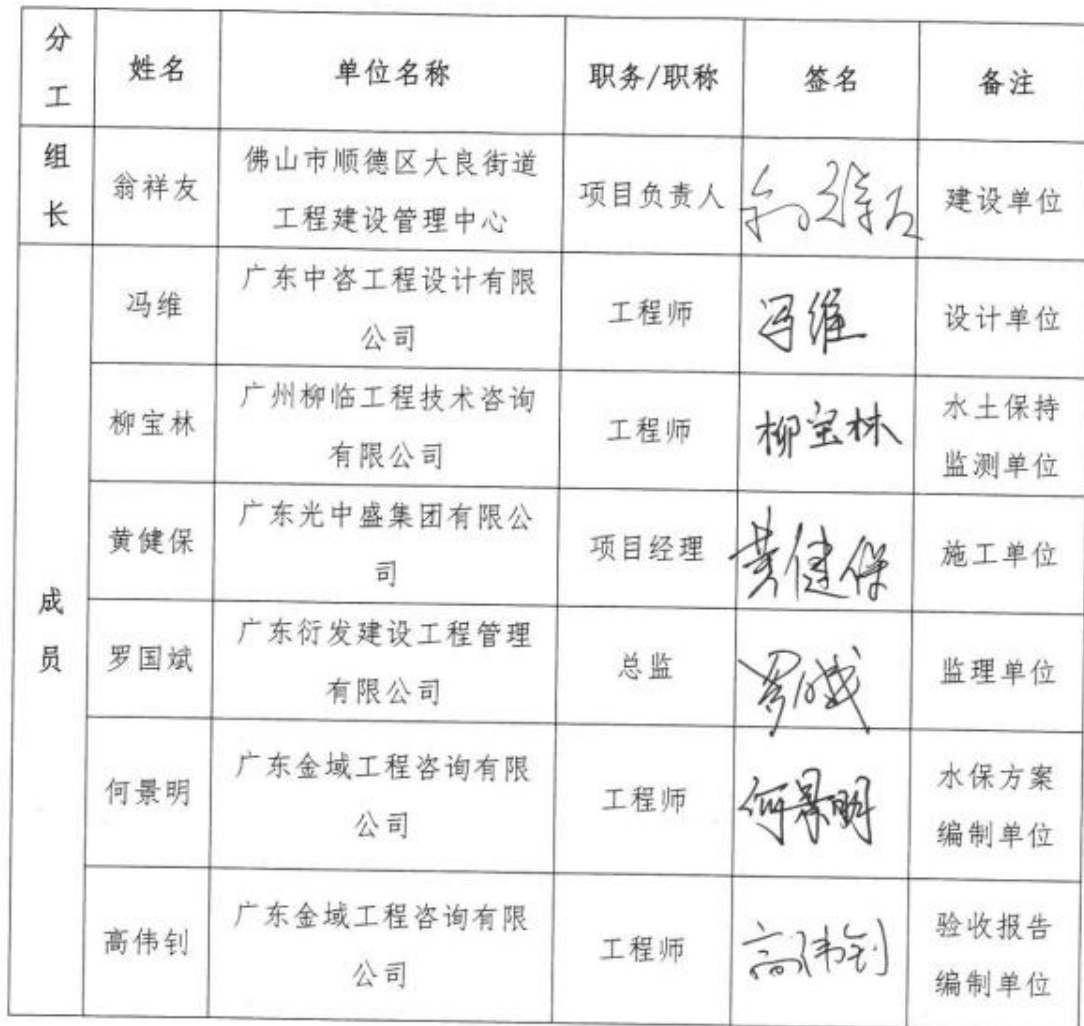 分工 姓名 单位名称 职务/职称 签名 备注
组长 翁祥友 佛山市顺德区大良街道工程建设管理中心 项目负责人 建设单位
成员
冯维 广东中咨工程设计有限公司 工程师 冯维 设计单位
柳宝林 广州柳临工程技术咨询有限公司 工程师 柳宝林 水土保持监测单位
黄健保 广东光中盛集团有限公司 项目经理 黄健保 施工单位
罗国斌 广东衍发建设工程管理有限公司 总监 监理单位
何景明 广东金域工程咨询有限公司 工程师 何景明 水保方案编制单位
高伟钊 广东金域工程咨询有限公司 工程师 高伟钊 验收报告编制单位